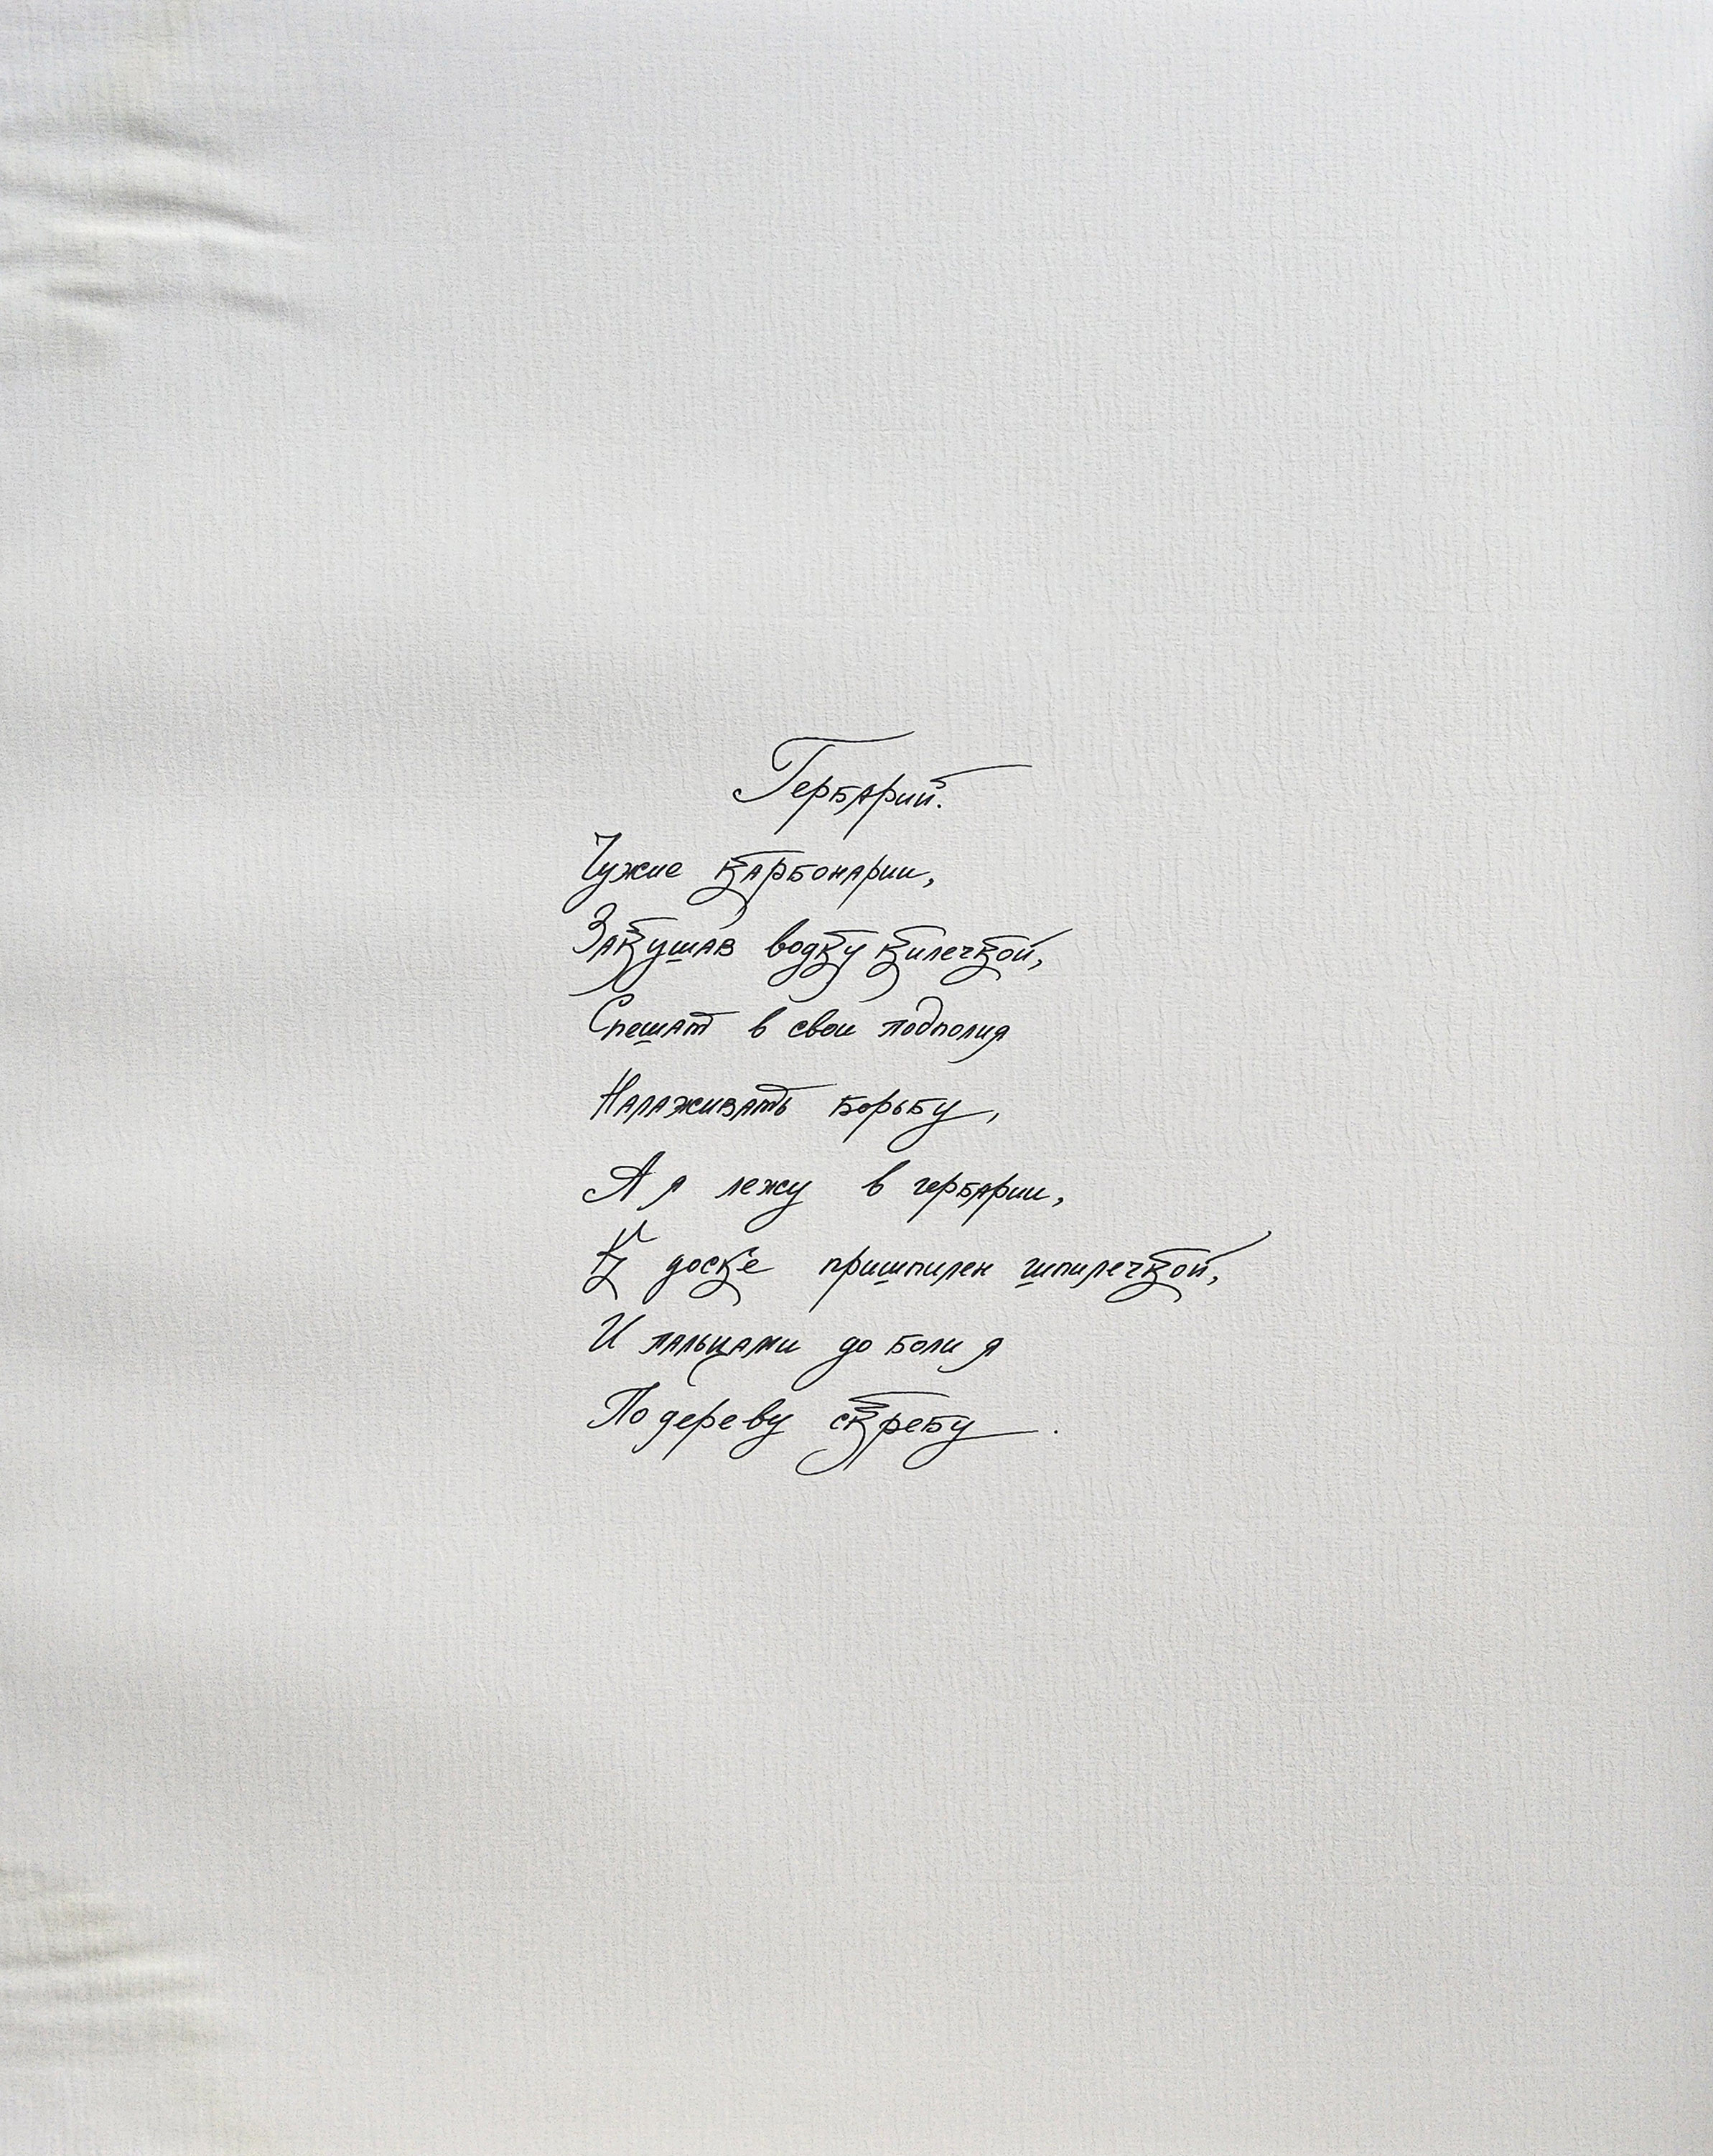 Гербарий.
Чужие карбонарии,
Закушав водку килечкой,
Спешат в свои подполия
Налаживать борьбу,
А я лежу в гербарии,
К доске пришпилен шпилечкой,
И пальцами до боли я
По дереву скребу.